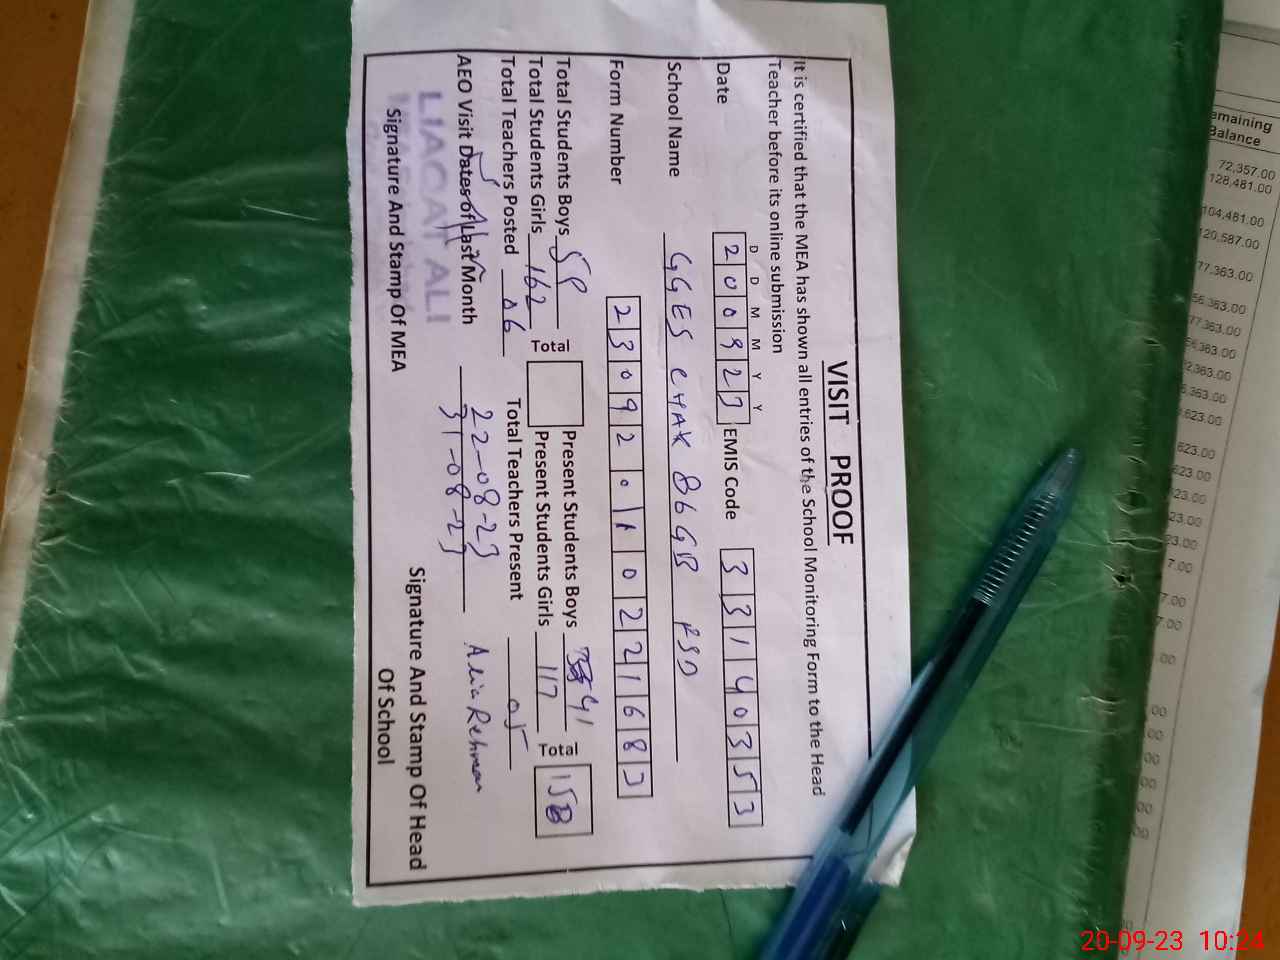 VISIT PROOF
It is certified that the MEA has shown all entries of the School Monitoring Form to the Head
Teacher before its online submission
D D M M Y Y
Date 200923 EMIS Code 33140353
School Name GGES CHAK 86 GB FSD
Form Number 23092010221683
Total Students Boys 59 Present Students Boys 41
Total Students Girls 162 Total Present Students Girls 117 Total 158
Total Teachers Posted 06 Total Teachers Present 05
AEO Visit Dates of Last Month 22-08-23
31-08-23
Signature And Stamp Of MEA
LIAQAT ALI
Signature And Stamp Of Head
Of School
emaining
Balance
72,357.00
128,481.00
104,481.00
120,587.00
77,363.00
56,363.00
77,363.00
56,363.00
2,363.00
5,363.00
,623.00
623.00
623.00
23.00
23.00
23.00
7.00
7.00
7.00
.00
.00
00
00
00
00
00
20-09-23 10:24